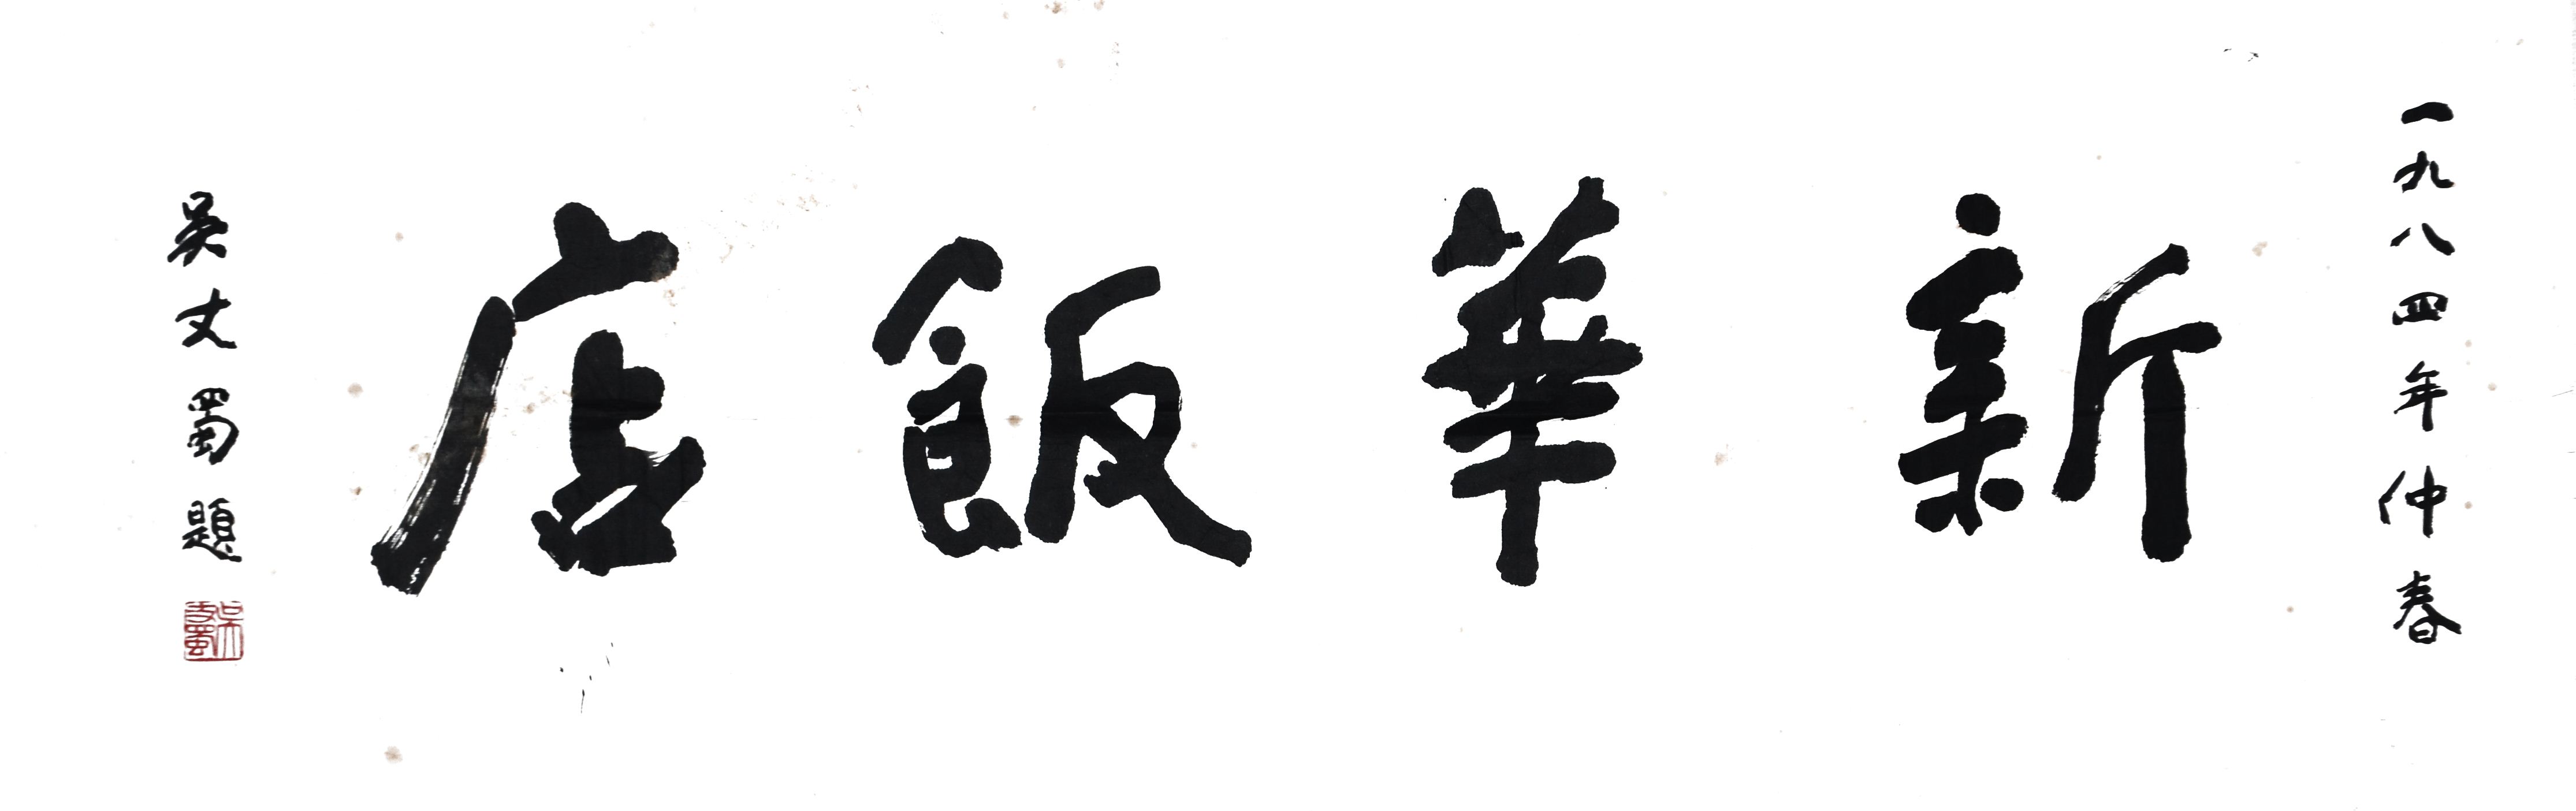 一九八四年仲春
新華飯店
吳丈蜀題
吳丈蜀